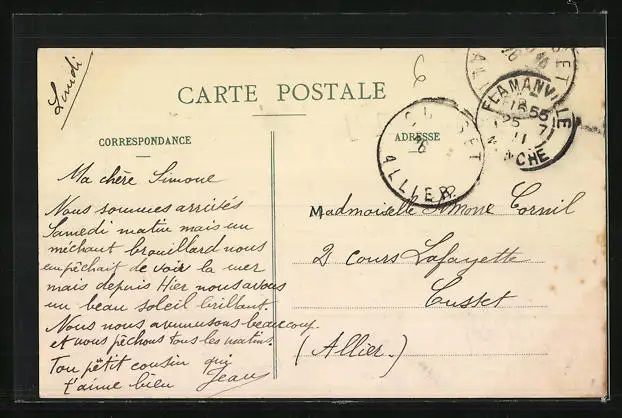 Lundi
CARTE POSTALE
CORRESPONDANCE
ADRESSE
Ma chère Simone
Nous sommes arrivés
Samedi matin mais un
méchant brouillard nous
empêchait de voir la mer
mais depuis Hier nous avons
un beau soleil brillant.
Nous nous amumusons beaucoup.
et nous pêchons tous les matins.
Ton pëtit cousin qui
t'aime bien Jean
Madmoiselle Simone Cornil
2 cours Lafayette
Cusset
(Allier.)
CUSSET
ALLIER
FLAMANVILLE
MANCHE